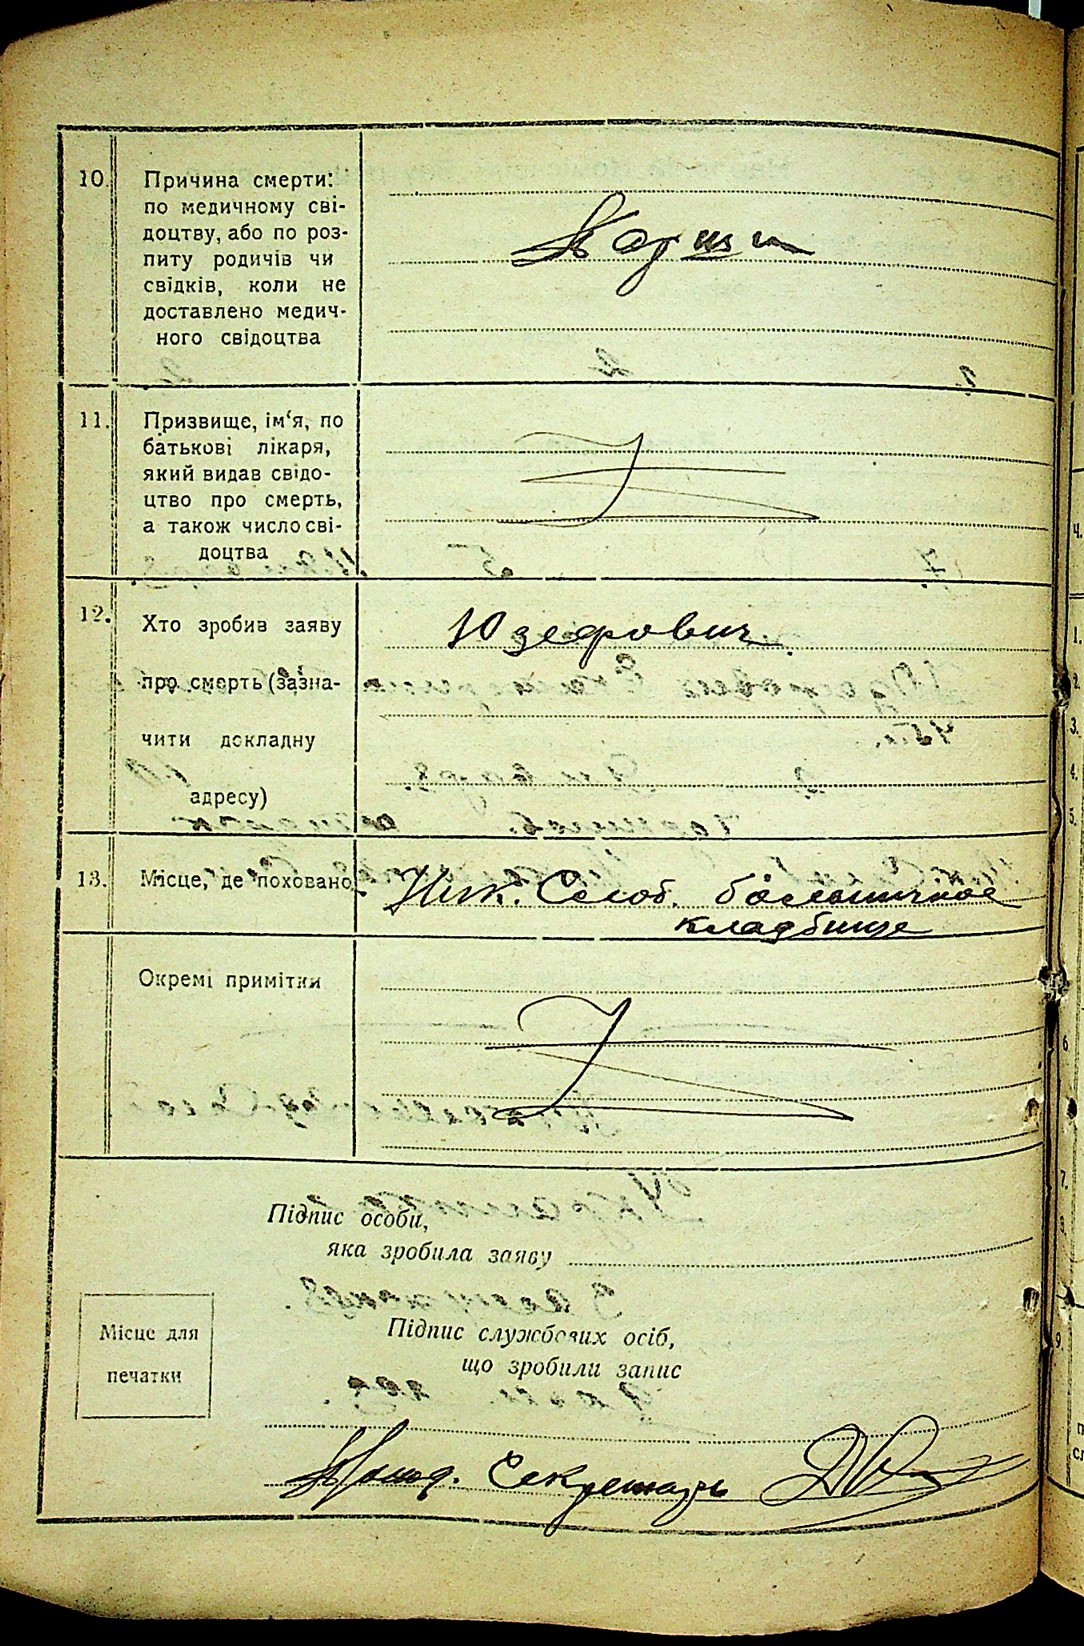 10. Причина смерти:
по медичному сві-
доцтву, або по роз-
питу родичів чи
свідків, коли не
доставлено медич-
ного свідоцтва
11. Призвище, ім‘я, по
батькові лікаря,
який видав свідо-
цтво про смерть,
а також число сві-
доцтва
12. Хто зробив заяву
про смерть (зазна-
чити докладну
адресу)
Юзефович.
13. Місце, де поховано
Ниж. Слоб. больничное
кладбище
Окремі примітки
Підпис особи,
яка зробила заяву
Місце для
печатки
Підпис службових осіб,
що зробили запис
Секретарь